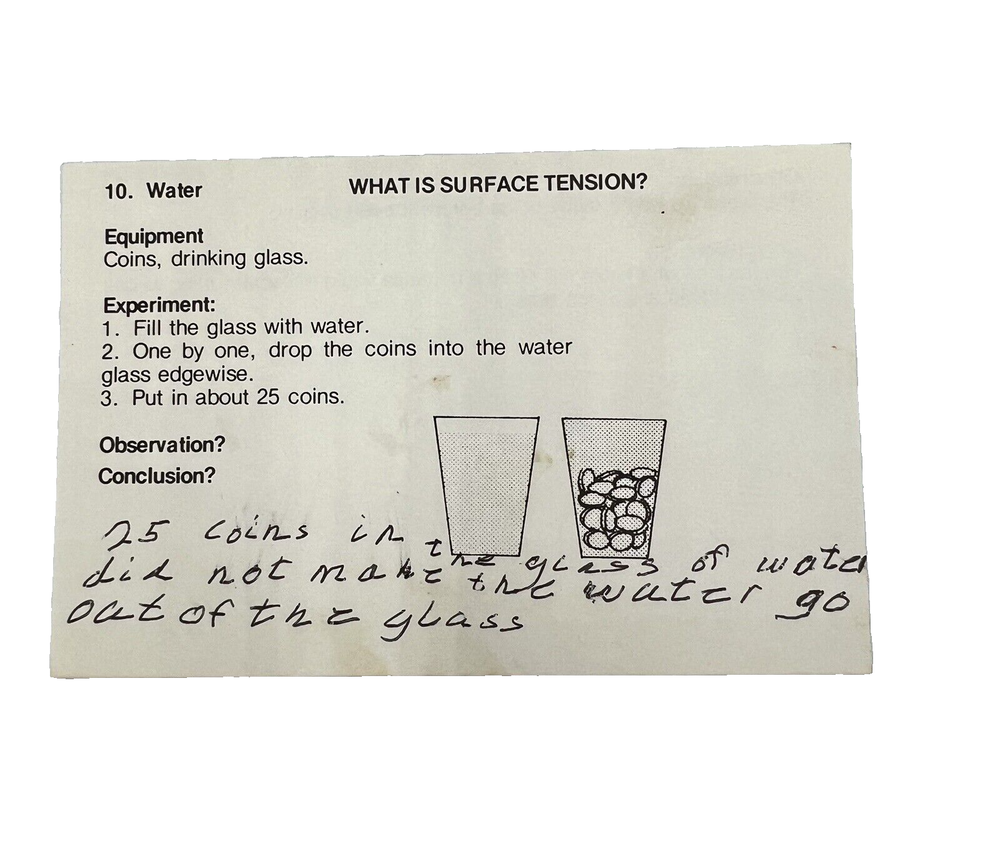 10. Water
WHAT IS SURFACE TENSION?
Equipment
Coins, drinking glass.
Experiment:
1. Fill the glass with water.
2. One by one, drop the coins into the water
glass edgewise.
3. Put in about 25 coins.
Observation?
Conclusion?
25 coins in the glass of water
did not make the water go
out of the glass